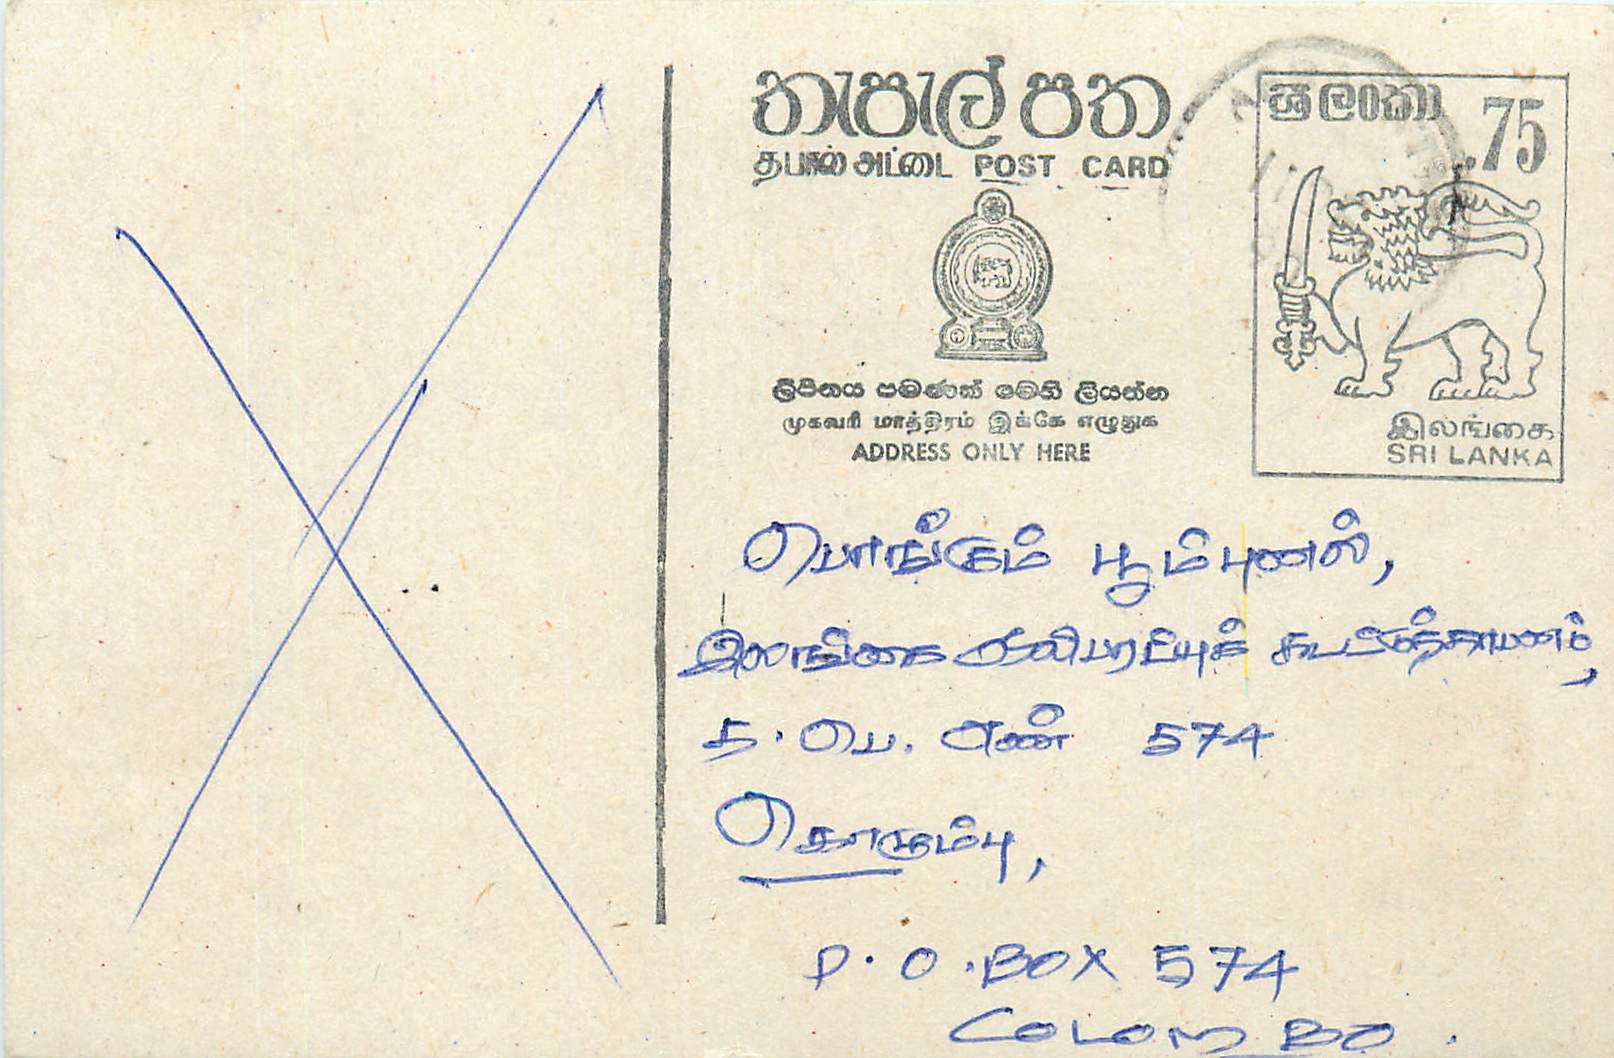 තැපැල් පත
தபால் அட்டை POST CARD
ශ්‍රී ලංකා
.75
ලිපිනය පමණක් මෙහි ලියන්න
முகவரி மாத்திரம் இங்கே எழுதுக
ADDRESS ONLY HERE
இலங்கை
SRI LANKA
பொங்கும் பூம்புனல்,
இலங்கை ஒலிபரப்புக் கூட்டுத்தாபனம்,
த. பெ. எண் 574
கொழும்பு,
P.O.BOX 574
COLOMBO.